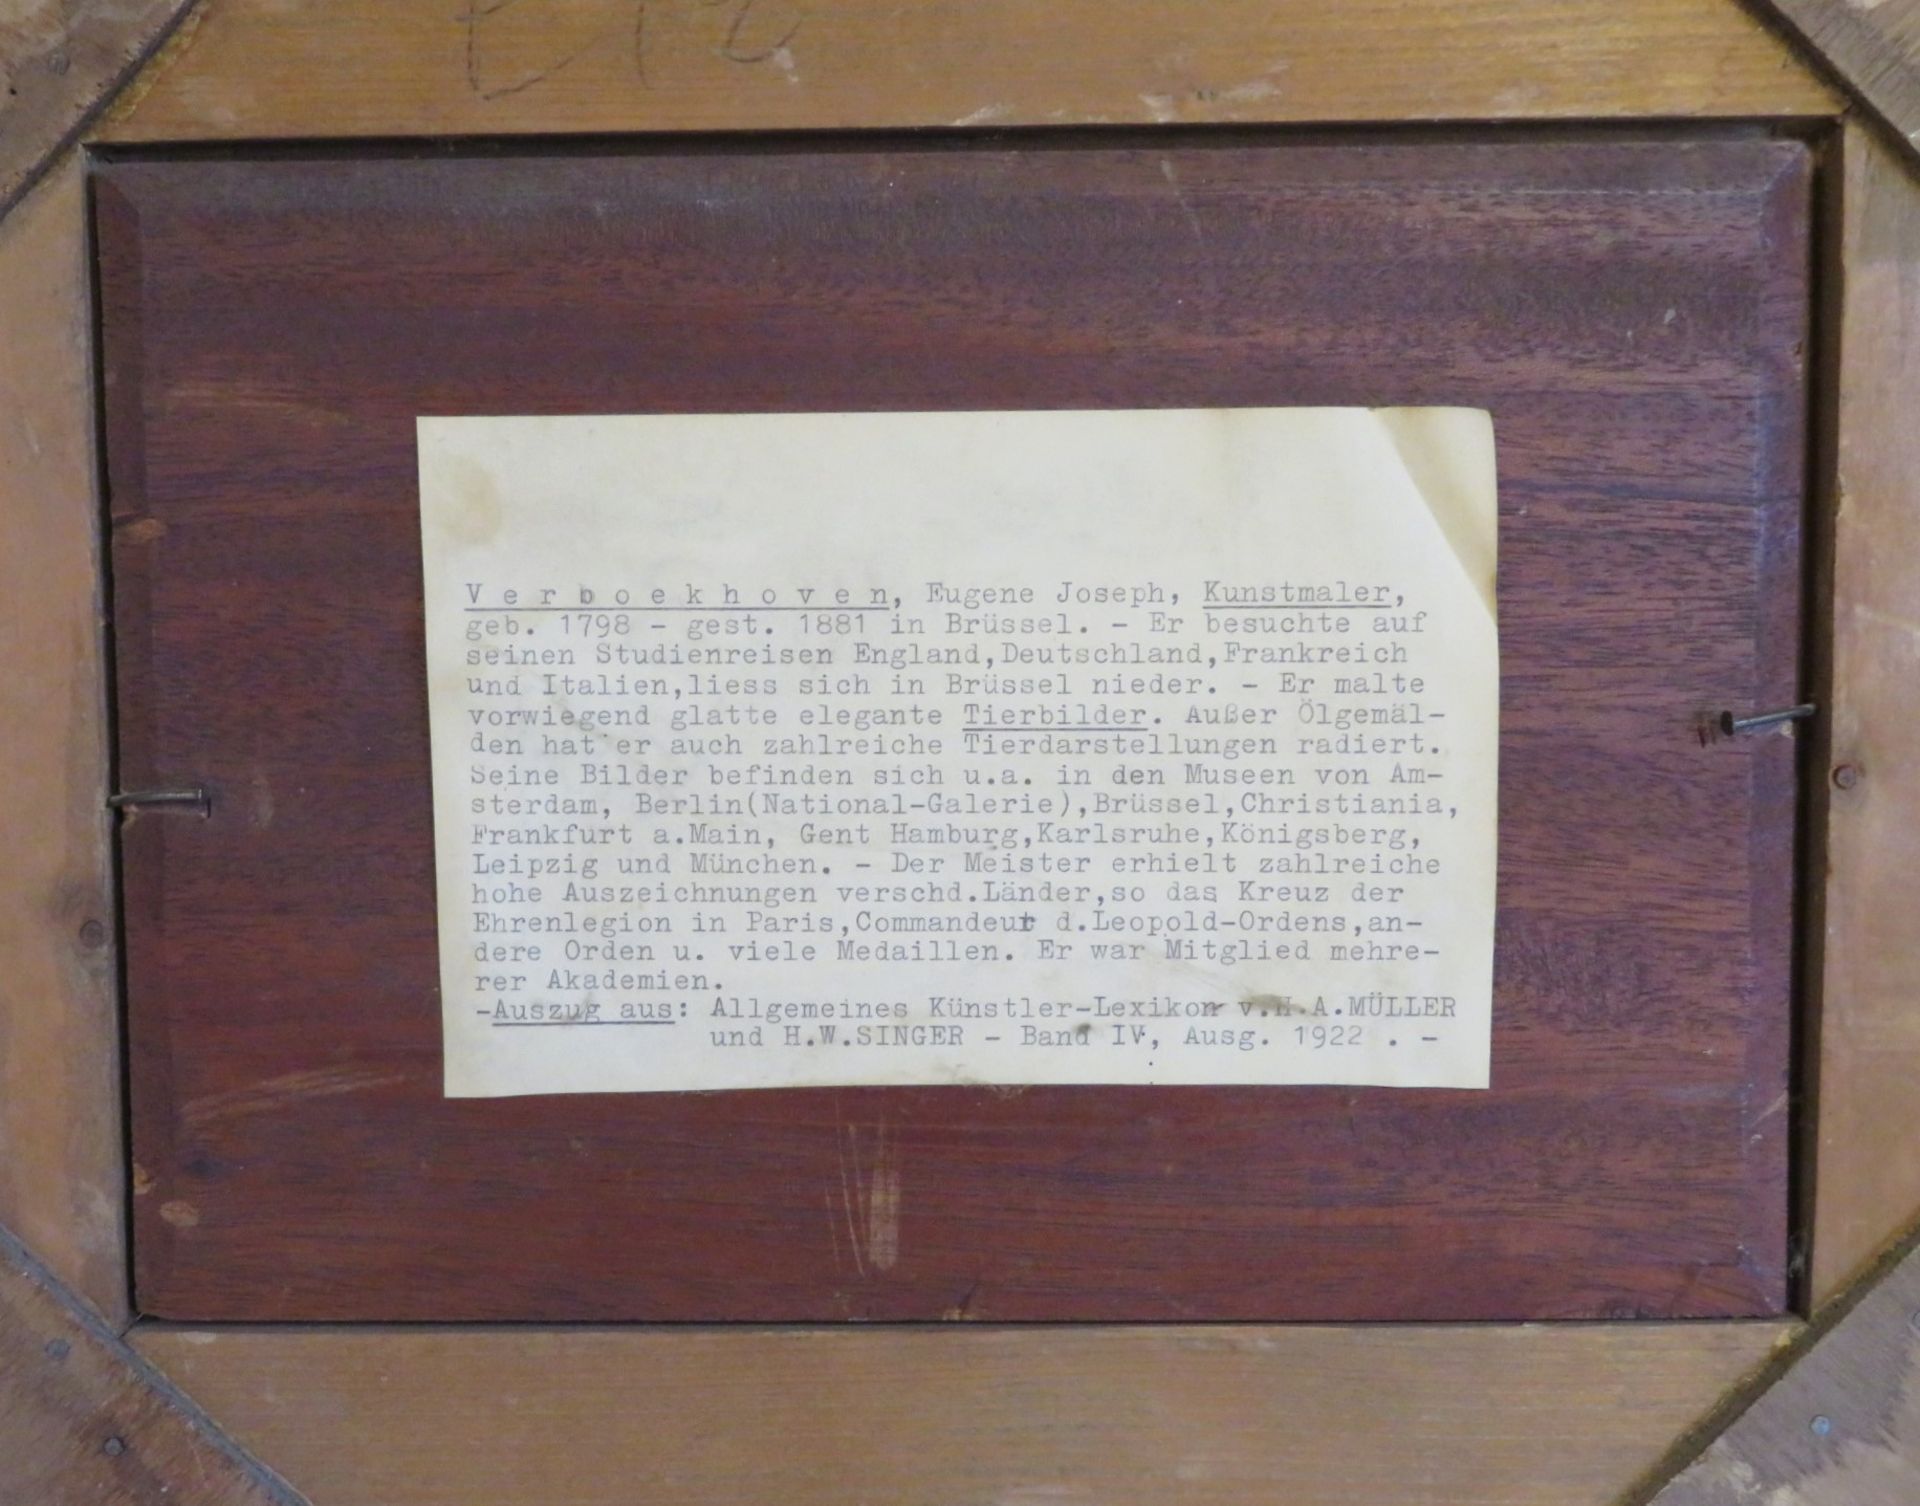 V e r b o e k h o v e n, Eugene Joseph, Kunstmaler,
geb. 1798 - gest. 1881 in Brüssel. - Er besuchte auf
seinen Studienreisen England,Deutschland,Frankreich
und Italien,liess sich in Brüssel nieder. - Er malte
vorwiegend glatte elegante Tierbilder. Außer Ölgemäl-
den hat er auch zahlreiche Tierdarstellungen radiert.
Seine Bilder befinden sich u.a. in den Museen von Am-
sterdam, Berlin(National-Galerie),Brüssel,Christiania,
Frankfurt a.Main, Gent Hamburg,Karlsruhe,Königsberg,
Leipzig und München. - Der Meister erhielt zahlreiche
hohe Auszeichnungen verschd.Länder,so das Kreuz der
Ehrenlegion in Paris,Commandeur d.Leopold-Ordens,an-
dere Orden u. viele Medaillen. Er war Mitglied mehre-
rer Akademien.
-Auszug aus: Allgemeines Künstler-Lexikon v.H.A.MÜLLER
und H.W.SINGER - Band IV, Ausg. 1922 . -